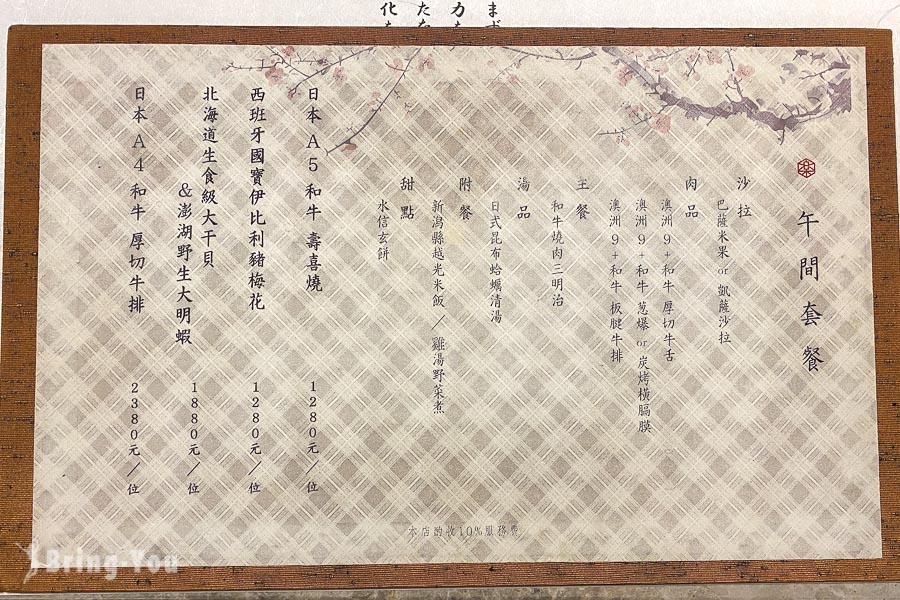 午間套餐
沙拉
巴薩米果 or 凱薩沙拉
肉品
澳洲9+和牛 厚切牛舌
澳洲9+和牛 蔥爆 or 炭烤橫膈膜
澳洲9+和牛 板腱牛排
主餐
和牛燒肉三明治
湯品
日式昆布蛤蠣清湯
附餐
新潟縣越光米飯／雞湯野菜煮
甜點
水信玄餅
日本A5和牛 壽喜燒 1280元／位
西班牙國寶伊比利豬梅花 1280元／位
北海道生食級大干貝
&澎湖野生大明蝦 1880元／位
日本A4和牛 厚切牛排 2380元／位
本店酌收10%服務費
Bring You